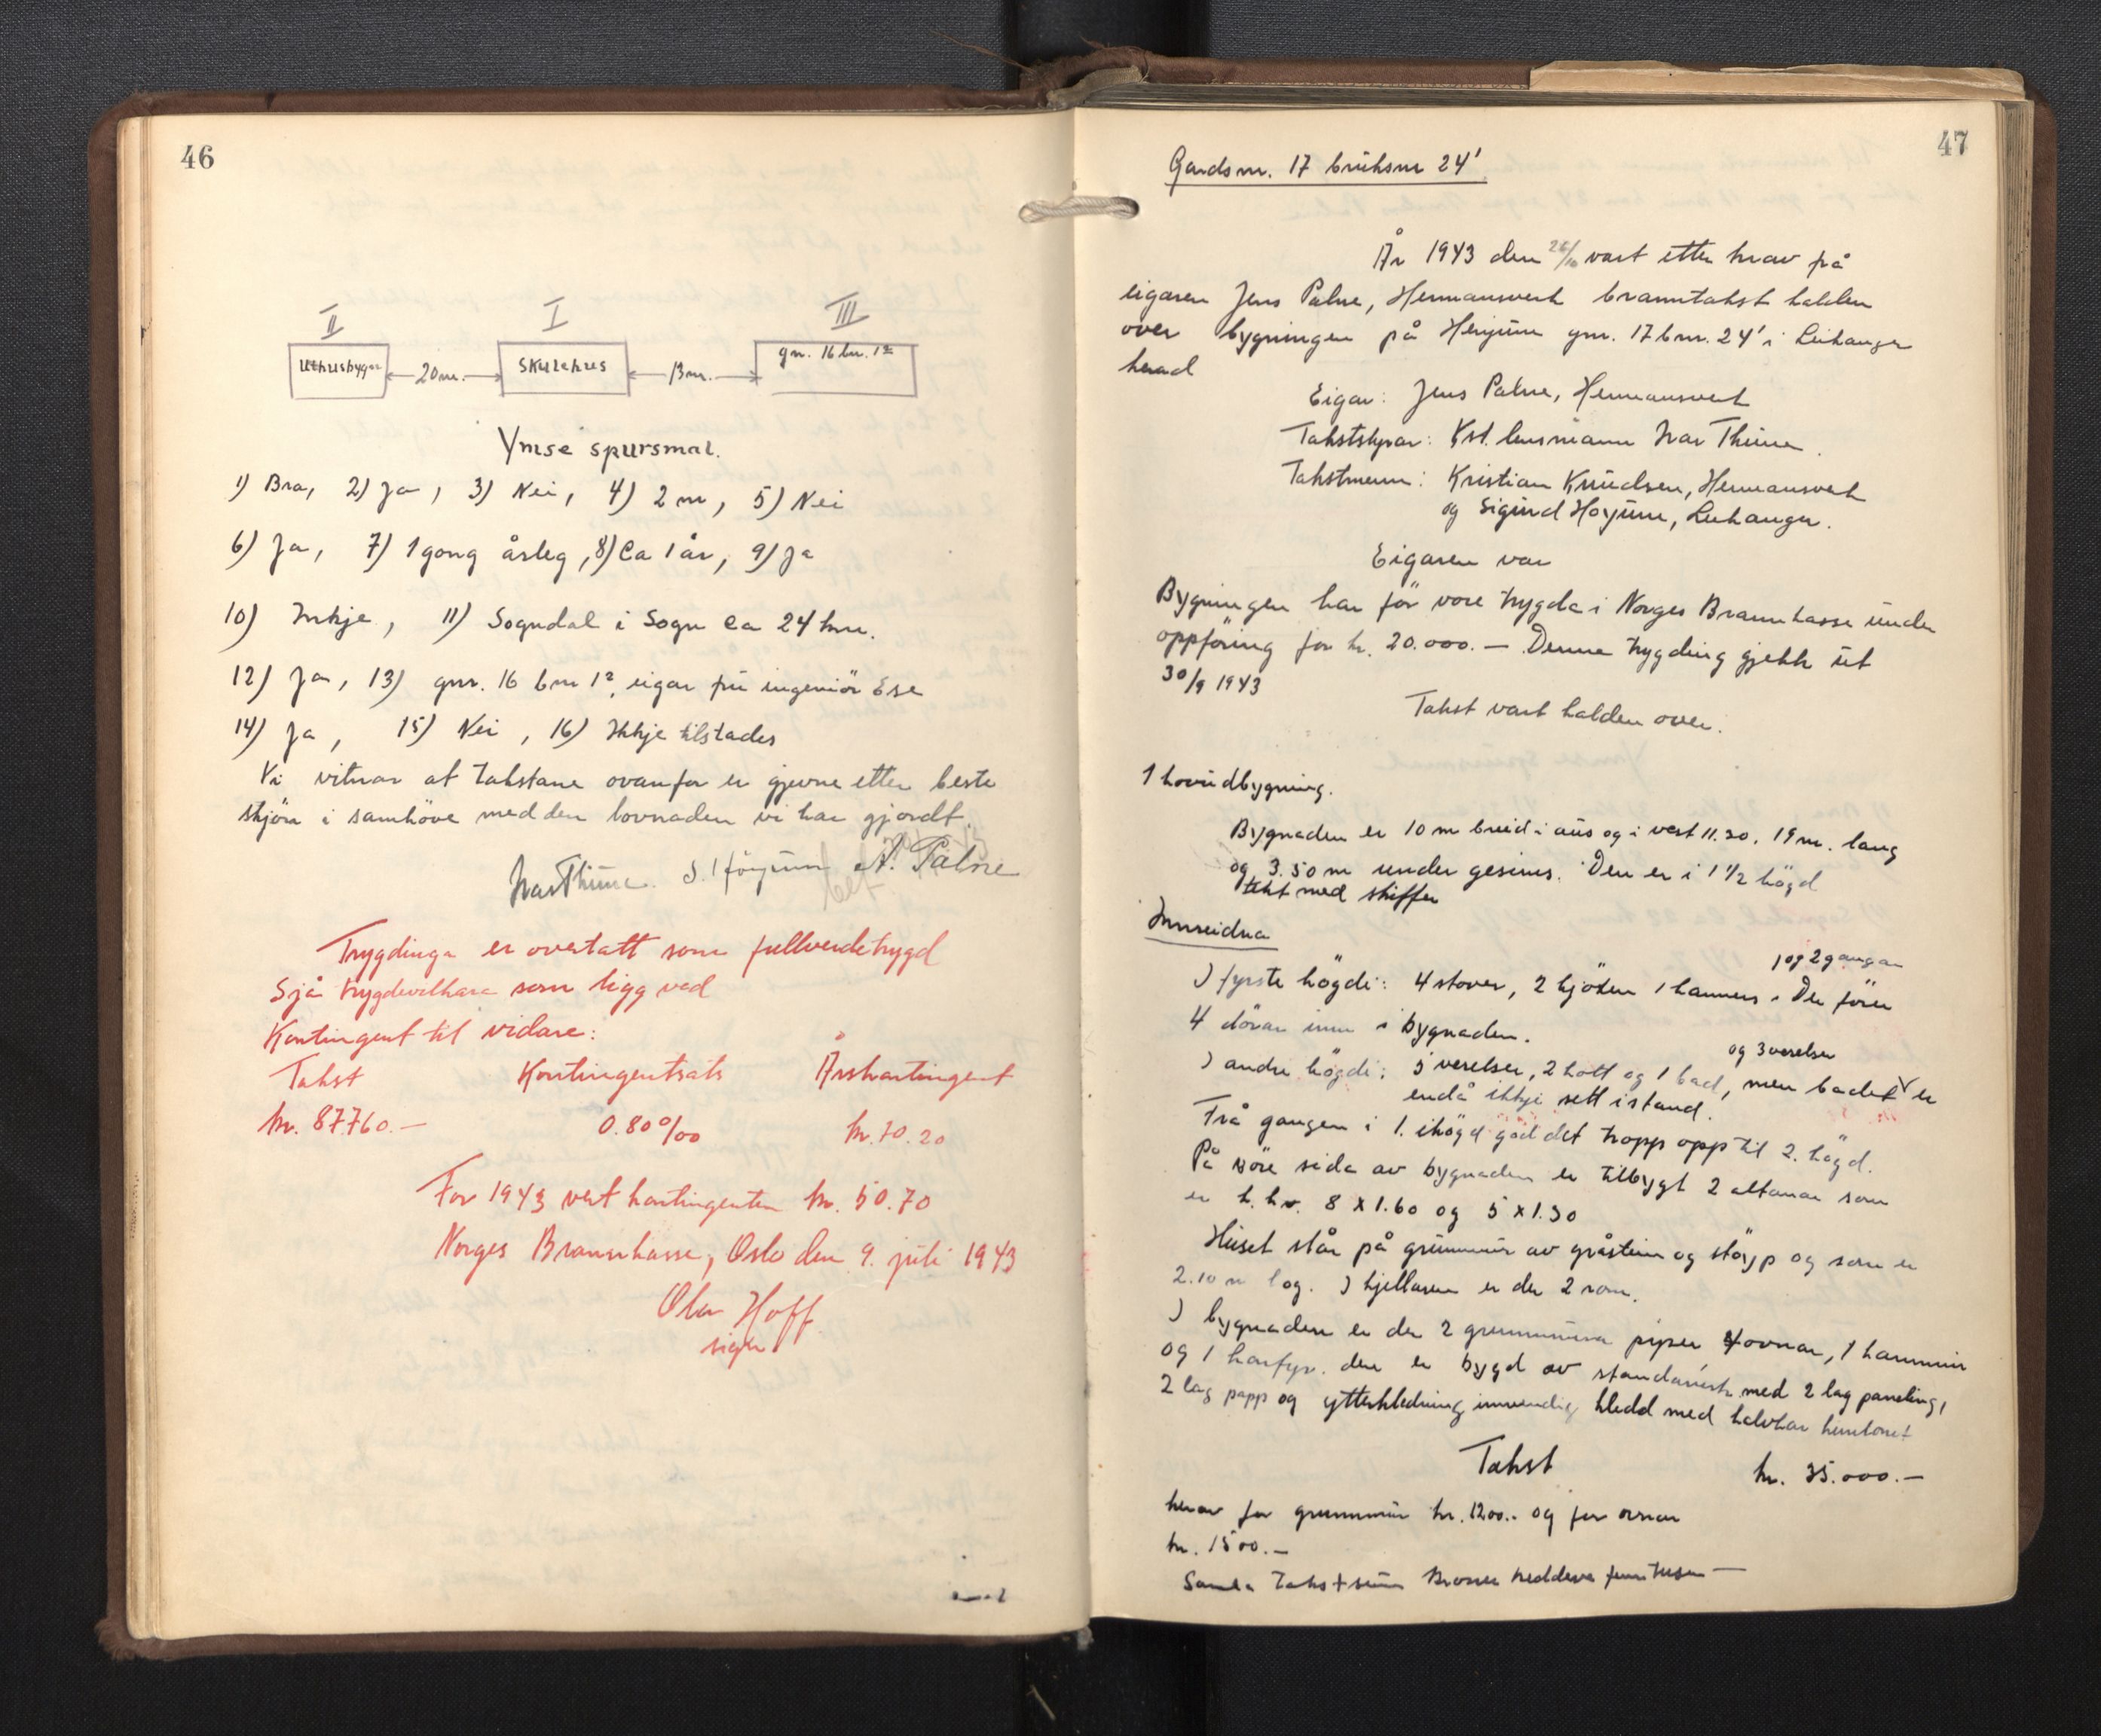 46
II
I
III
Uthusbygn
20 m.
Skulehus
13 m.
gn. 16 bn. 12
Ymse spursmal.
1) Bra, 2) Ja, 3) Nei, 4) 2 m, 5) Nei
6) Ja, 7) 1 gong årleg, 8) Ca 1 år, 9) Ja
10) Inkje, 11) Sogndal i Sogn ca 24 km.
12) Ja, 13) gnr. 16 bnr 12, eigar frú ingeniör Ese
14) Ja, 15) Nei, 16) Ikkje tilstades
Vi vitnar at takstane ovanfor er gjevne etter beste
skjön i samhöve med den lovnaden vi har gjordt.
Ivar Thúne. S. Höyum A. Palne
Trygdinga er overtatt som fullverdetrygd
Sjå trygdevilkåra som ligg ved
Kontingent til vidare:
Takst Kontingentsats Årskontingent
kr. 87760.— 0.80 ‰ kr. 70.20
For 1943 vert kontingenten kr. 50.70
Norges Brannkasse, Oslo den 9. juli 1943
Olav Hoff
sign
47
Gardsnr. 17 brúksnr 24'
År 1943 den 26/10 vart etter krav på
eigaren Jens Palne, Hermansverk branntakst halden
over bygningen på Henjúm gnr. 17 bnr. 24' i Leikanger
herad
Eigar: Jens Palne, Hermansverk
Takststyrar: Kst. lensmann Ivar Thúne.
Takstmenn: Kristian Knúdsen, Hermansverk
og Sigúrd Höyúm, Leikanger.
Eigaren var
Bygningen har för vore trygda i Norges Brannkasse únder
oppföring for kr. 20.000.— Denne trygding gjekk út
30/9 1943
Takst vart halden over.
1 hovúdbygning.
Bygnaden er 10 m breid i aús og i vest 11.30. 19 m. lang
og 3.50 m under gesims. Den er i 1 1/2 högd
tekt med skiffer
Innreidna
I fyrste högdi: 4 stover, 2 kjöken 1 kammers. Der förer
1 og 2 gangar
4 dörar inn i bygnaden.
og 3 verelser
I andre högdi: 5 verelser, 2 kott og 1 bad, men badet er
endå ikkje sett istand.
Frå gangen i 1. ihögd går det tropp opp til 2. högd.
På söre sida av bygnaden er tilbygt 2 altanar som
er h.hv. 8 x 1.60 og 5 x 1.30
Húset står på grúnnmúr av gråstein og stöyp og som er
2.10 m log. I kjellaren er der 2 rom.
I bygnaden er der 2 grunnmúra piper 4 ovnar, 1 kammin
og 1 komfyr. den er bygd av standarverk med 2 lag paneling,
2 lag papp og ytterkledning innvendig kledd med halvhar
Takst kr. 35.000.—
herav for grunnmúr kr. 1200.- og for ovnar
kr. 1500.—
Samla Takstsúm Kroner treddeve femtusen —